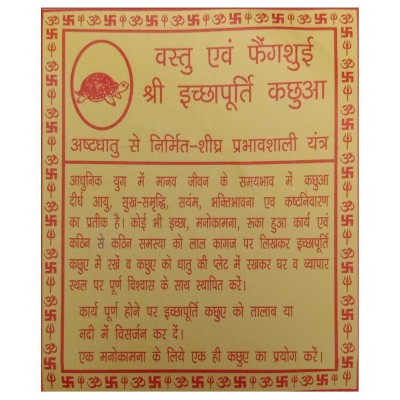 वस्तु एवं फेंगशुई
श्री इच्छापूर्ति कछुआ
अष्टधातु से निर्मित-शीघ्र प्रभावशाली यंत्र
आधुनिक युग में मानव जीवन के समयभाव में कछुआ
दीर्घ आयु, सुख-समृद्धि, सयंम, भक्तिभावना एवं कष्टनिवारण
का प्रतीक है। कोई भी इच्छा, मनोकामना, रूका हुआ कार्य एवं
कठिन से कठिन समस्या को लाल कागज पर लिखकर इच्छापूर्ति
कछुए में रखें व कछुए को धातु की प्लेट में रखकर घर व व्यापार
स्थल पर पूर्ण विश्वास के साथ स्थापित करें।
कार्य पूर्ण होने पर इच्छापूर्ति कछुए को तालाब या
नदी में विसर्जन कर दें।
एक मनोकामना के लिये एक ही कछुए का प्रयोग करें।